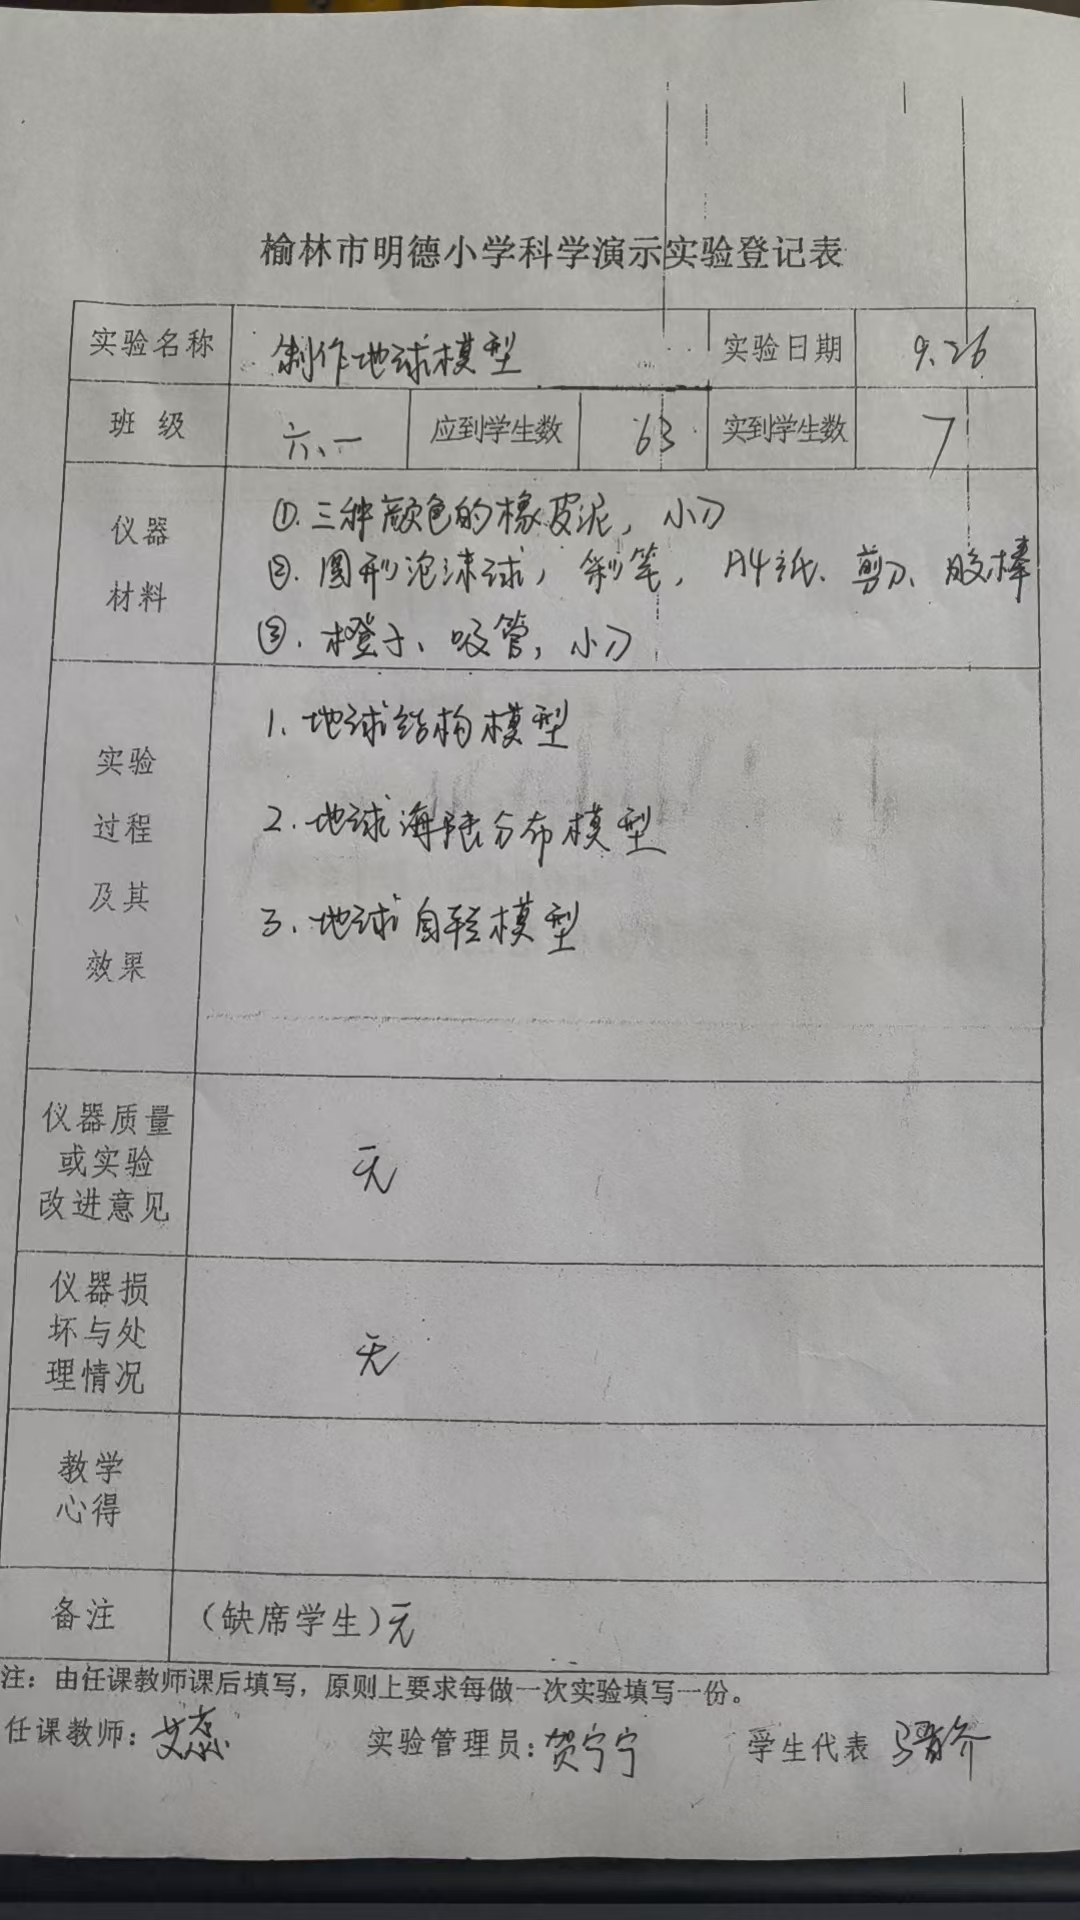 榆林市明德小学科学演示实验登记表
实验名称 制作地球模型 实验日期 9.26
班级 六、一 应到学生数 63 实到学生数 7
仪器材料
①.三种颜色的橡皮泥,小刀
②.圆形泡沫球,彩笔,A4纸、剪刀、胶棒
③.橙子、吸管,小刀
实验过程及其效果
1.地球结构模型
2.地球海陆分布模型
3.地球自转模型
仪器质量或实验改进意见 无
仪器损坏与处理情况 无
教学心得
备注 (缺席学生)无
注:由任课教师课后填写,原则上要求每做一次实验填写一份。
任课教师:艾蕊 实验管理员:贺宁宁 学生代表